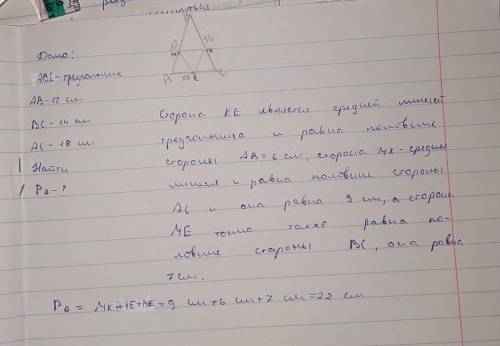 B
12
14
M
K
A
18
E
C
Дано:
ABC-треугольник
AB-12 см.
BC-14 см.
AC-18 см.
Найти
P∆-?
Сторона KE является средней линией
треугольника и равна половине
стороны AB=6 см, сторона MK-средняя
линия и равна половине стороны
AC и она равна 9 см, а сторона
ME точно также равна по-
ловине стороны BC, она равна
7 см.
P∆ = MK+KE+ME=9 см+6 см+7 см=22 см